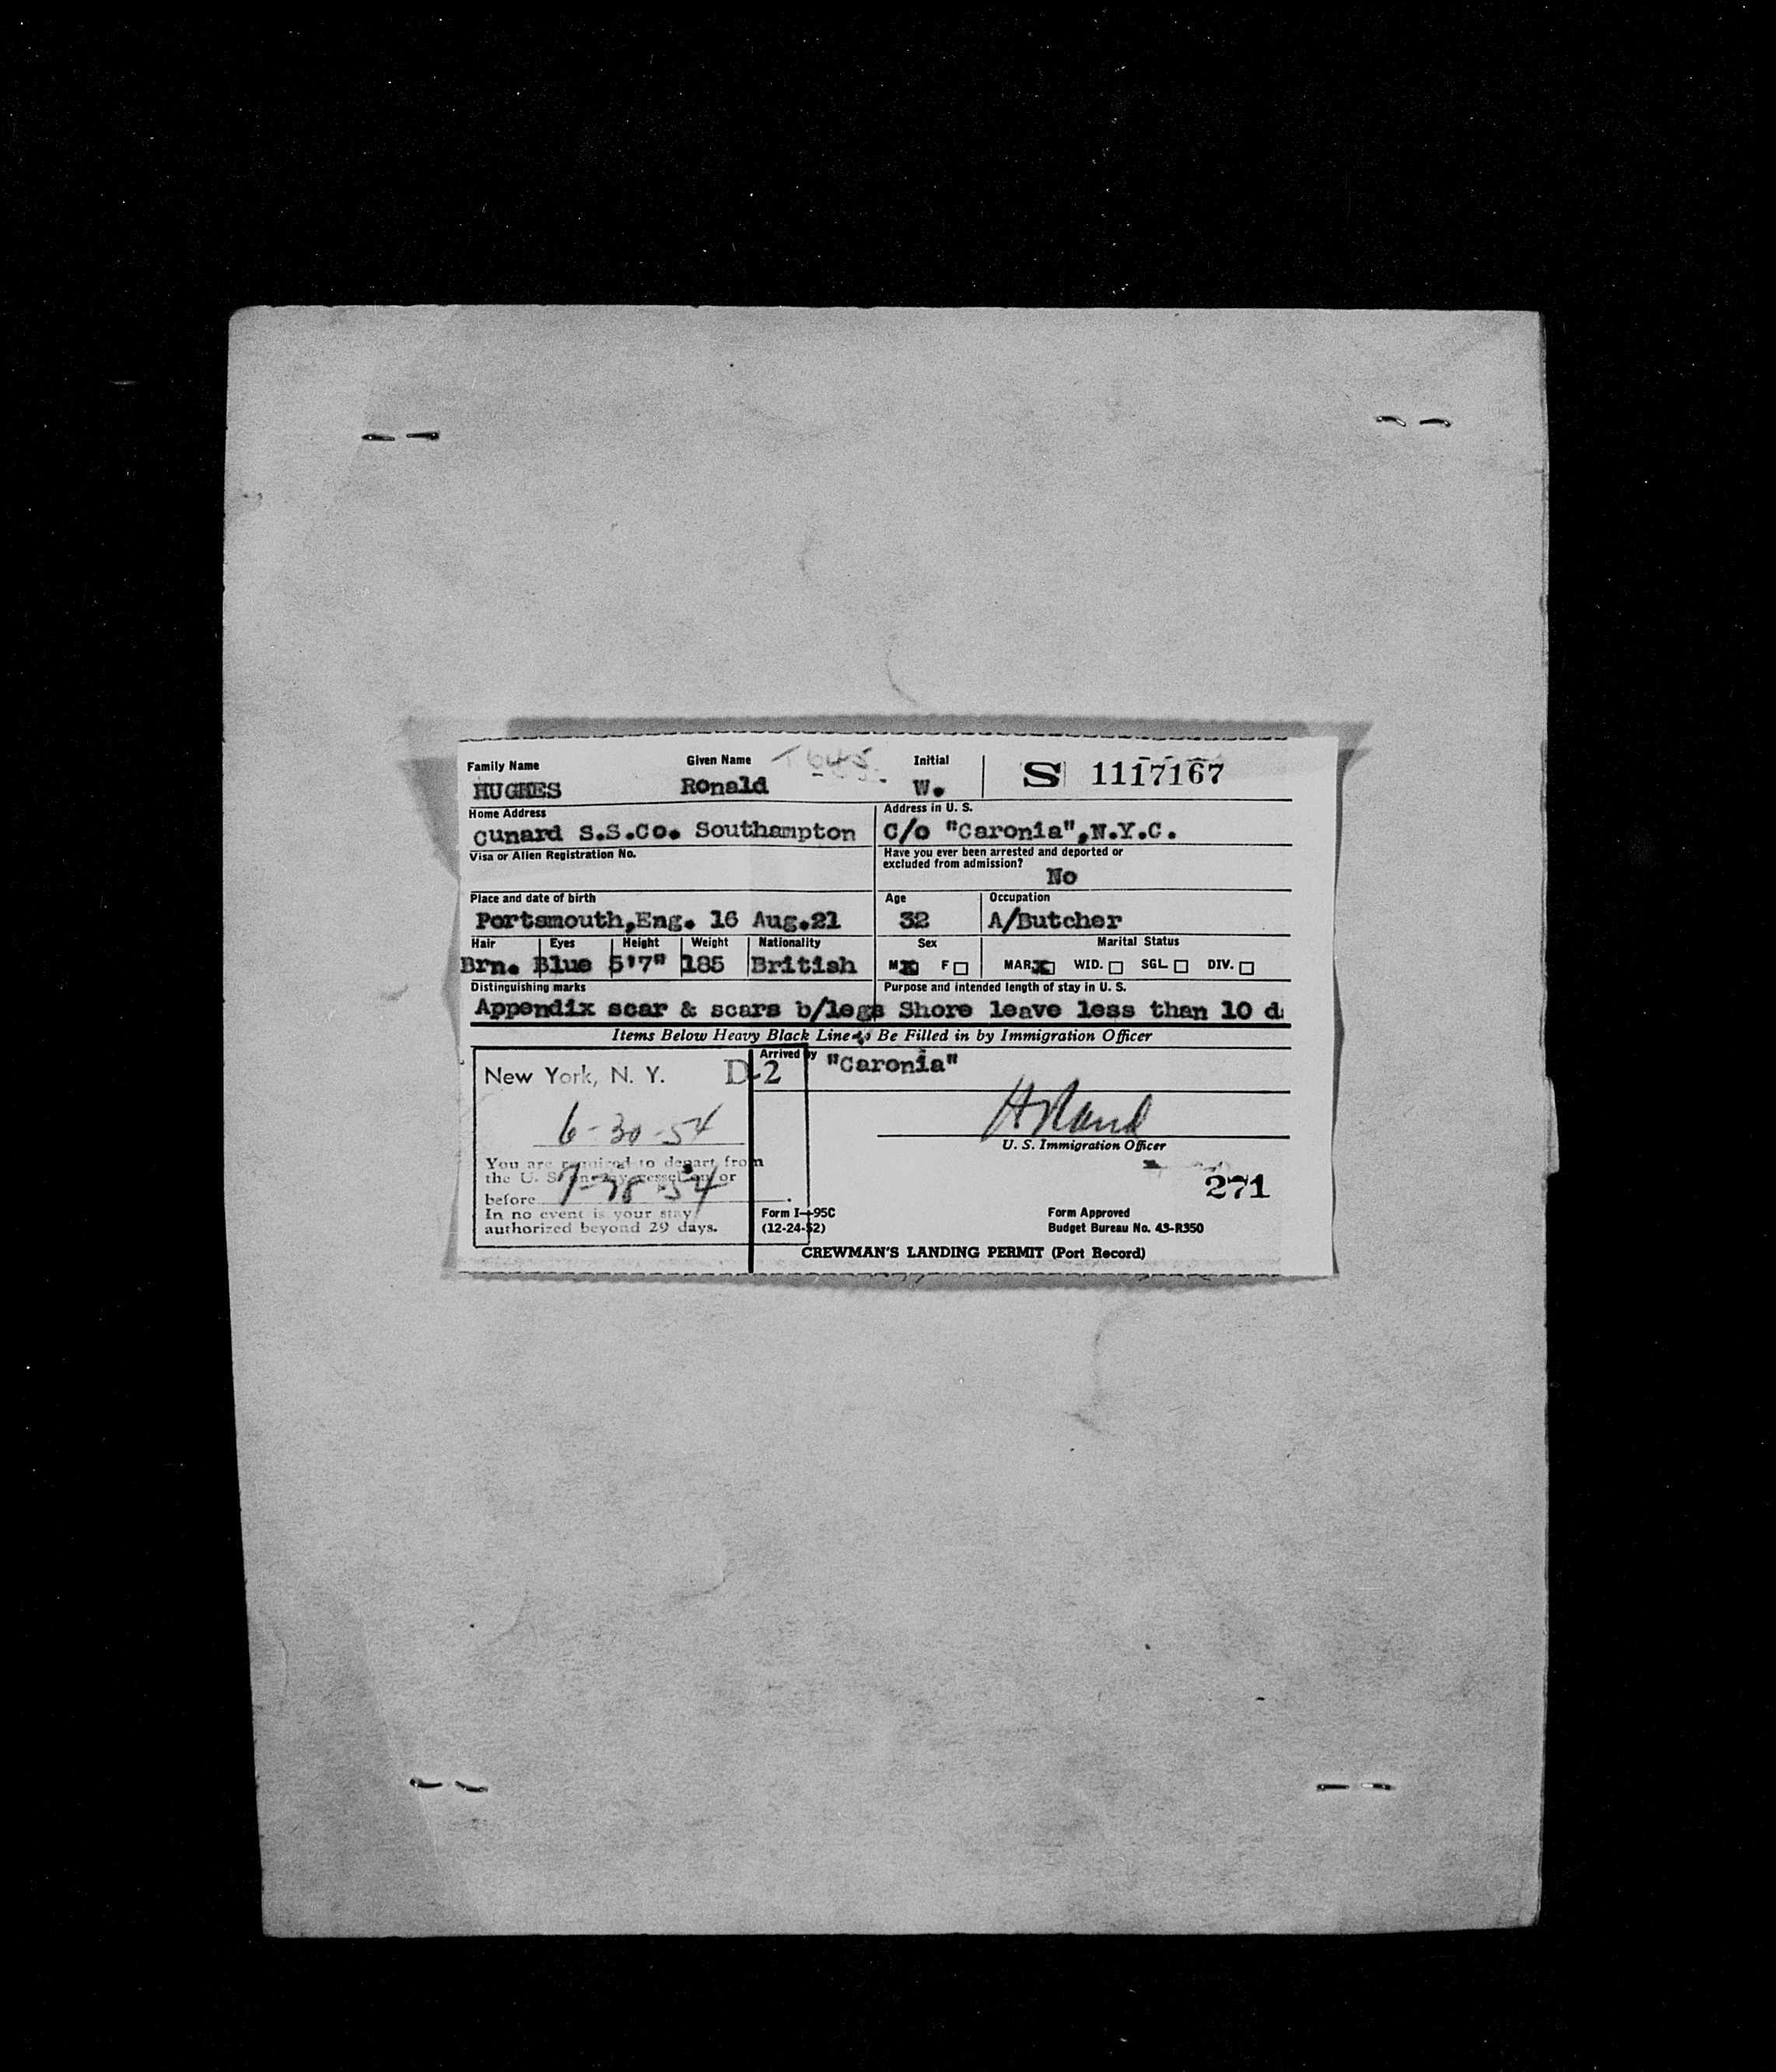 Family Name Given Name Initial
HUGHES ROnald W. S 1117167
Home Address Address in U. S.
Cunard S.S.Co. Southampton C/o "Caronia",N.Y.C.
Visa or Alien Registration No. Have you ever been arrested and deported or
excluded from admission?
No
Place and date of birth Age Occupation
Portsmouth,Eng. 16 Aug.21 32 A/Butcher
Hair Eyes Height Weight Nationality Sex Marital Status
Brn. Blue 5'7" 185 British M X F MAR. X WID. SGL. DIV.
Distinguishing marks Purpose and intended length of stay in U. S.
Appendix scar & scars b/legs Shore leave less than 10 d
Items Below Heavy Black Line to Be Filled in by Immigration Officer
Arrived by "Caronia"
New York, N. Y. D-2
6-30-54
U. S. Immigration Officer
You are required to depart from
the U. S. on any vessel on or
before 7-28-54
In no event is your stay
authorized beyond 29 days.
271
Form I-95C
(12-24-52)
Form Approved
Budget Bureau No. 43-R350
CREWMAN'S LANDING PERMIT (Port Record)